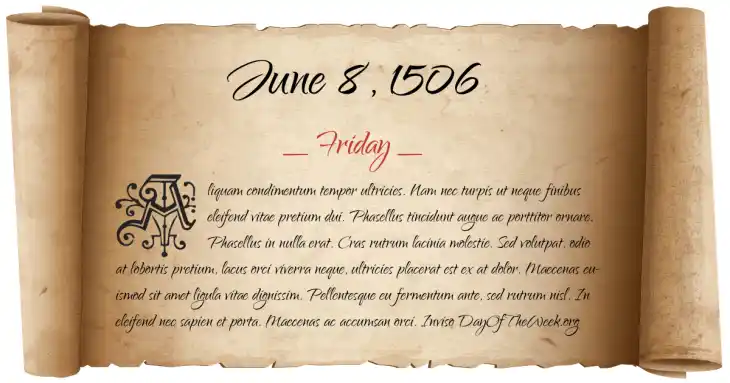 June 8, 1506
_ Friday _
Aliquam condimentum tempor ultricies. Nam nec turpis ut neque finibus
eleifend vitae pretium dui. Phasellus tincidunt augue ac porttitor ornare.
Phasellus in nulla erat. Cras rutrum lacinia molestie. Sed volutpat, odio
at lobortis pretium, lacus orci viverra neque, ultricies placerat est ex at dolor. Maecenas eu-
ismod sit amet ligula vitae dignissim. Pellentesque eu fermentum ante, sed rutrum nisl. In
eleifend nec sapien et porta. Maecenas ac accumsan orci. Invisq DayOfTheWeek.org